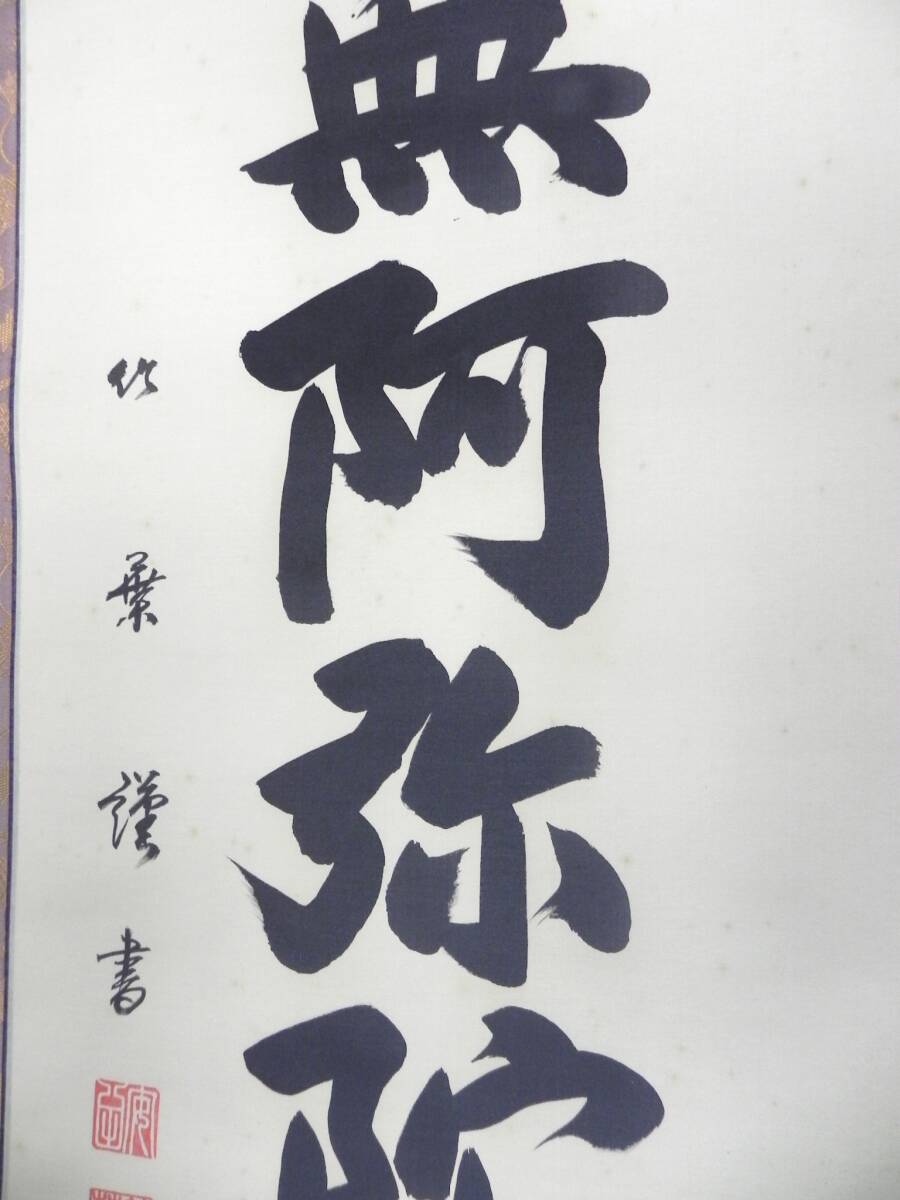 無阿弥陀
竹葉謹書